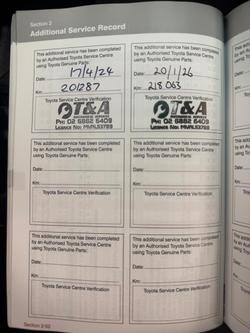 Section 2
Additional Service Record
This additional service has been completed
by an Authorised Toyota Service Centre
using Toyota Genuine Parts:
Date: 17/4/24
Km: 201287
Toyota Service Centre Verification
T&A
PH: 02 6882 6409
LICENCE NO: MVRL53769
This additional service has been completed
by an Authorised Toyota Service Centre
using Toyota Genuine Parts:
Date: 20/1/26
Km: 218 063
Toyota Service Centre Verification
T&A
PH: 02 6882 6409
LICENCE NO: MVRL53769
This additional service has been completed
by an Authorised Toyota Service Centre
using Toyota Genuine Parts:
Date:
Km:
Toyota Service Centre Verification
This additional service has been completed
by an Authorised Toyota Service Centre
using Toyota Genuine Parts:
Date:
Km:
Toyota Service Centre Verification
This additional service has been completed
by an Authorised Toyota Service Centre
using Toyota Genuine Parts:
Date:
Km:
Toyota Service Centre Verification
This additional service has been completed
by an Authorised Toyota Service Centre
using Toyota Genuine Parts:
Date:
Km:
Toyota Service Centre Verification